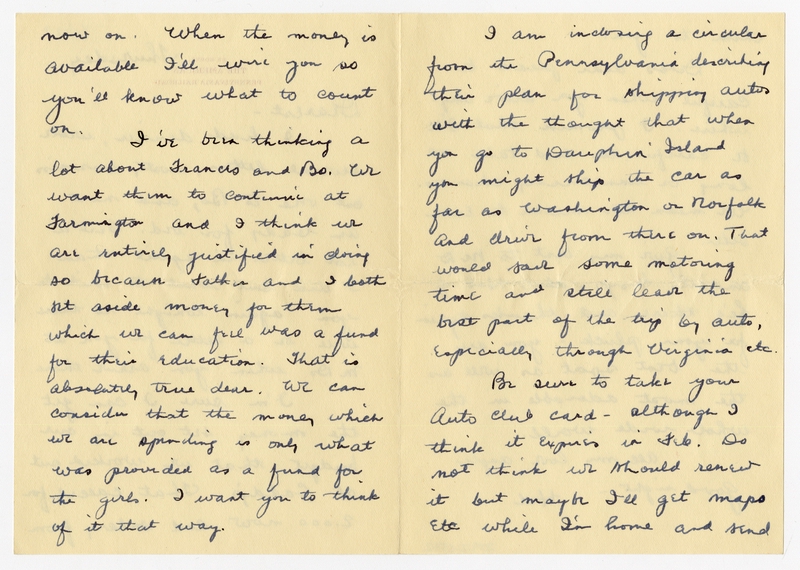 now on. When the money is
available I'll wire you so
you'll know what to count
on.
I've been thinking a
lot about Francis and Bo. We
want them to continue at
Farmington and I think we
are entirely justified in doing
so because Father and I both
set aside money for them
which we can feel was a fund
for their education. That is
absolutely true dear. We can
consider that the money which
we are spending is only what
was provided as a fund for
the girls. I want you to think
of it that way.
I am inclosing a circular
from the Pennsylvania describing
their plan for shipping autos
with the thought that when
you go to Dauphin Island
you might ship the car as
far as Washington or Norfolk
and drive from there on. That
would save some motoring
time and still leave the
best part of the trip by auto,
especially through Virginia etc.
Be sure to take your
Auto club card - although I
think it expires in Feb. Do
not think we should renew
it but maybe I'll get maps
etc while I'm home and send